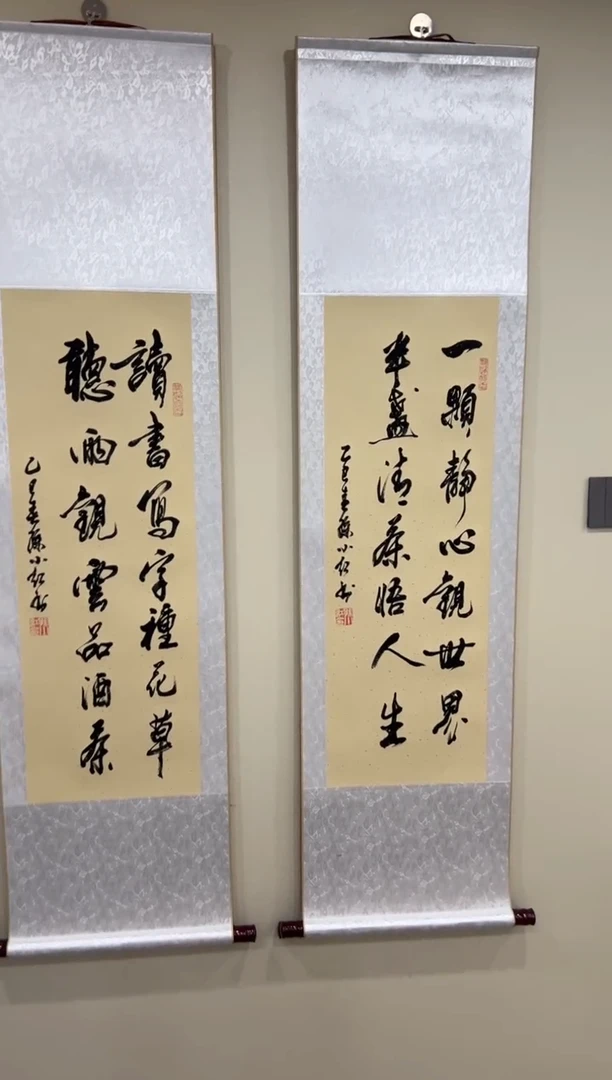 一顆靜心觀世界
半盞清茶悟人生
乙巳春蘇小紅書
讀書寫字種花草
聽雨觀雲品酒茶
乙巳春蘇小紅書